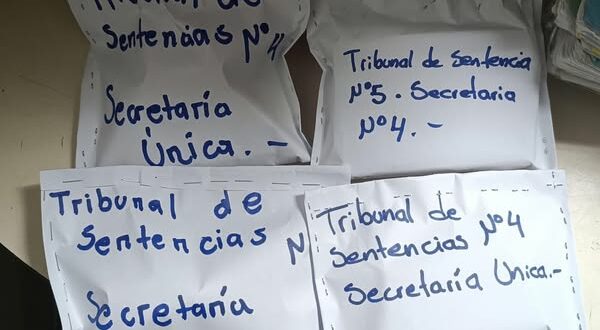 Tribunal de
Sentencias Nº 4
Secretaría
Única. -
Tribunal de Sentencia
Nº5. Secretaria
Nº4. -
Tribunal de
Sentencias N
Secretaría
Tribunal de
Sentencias Nº4
Secretaría Única.-